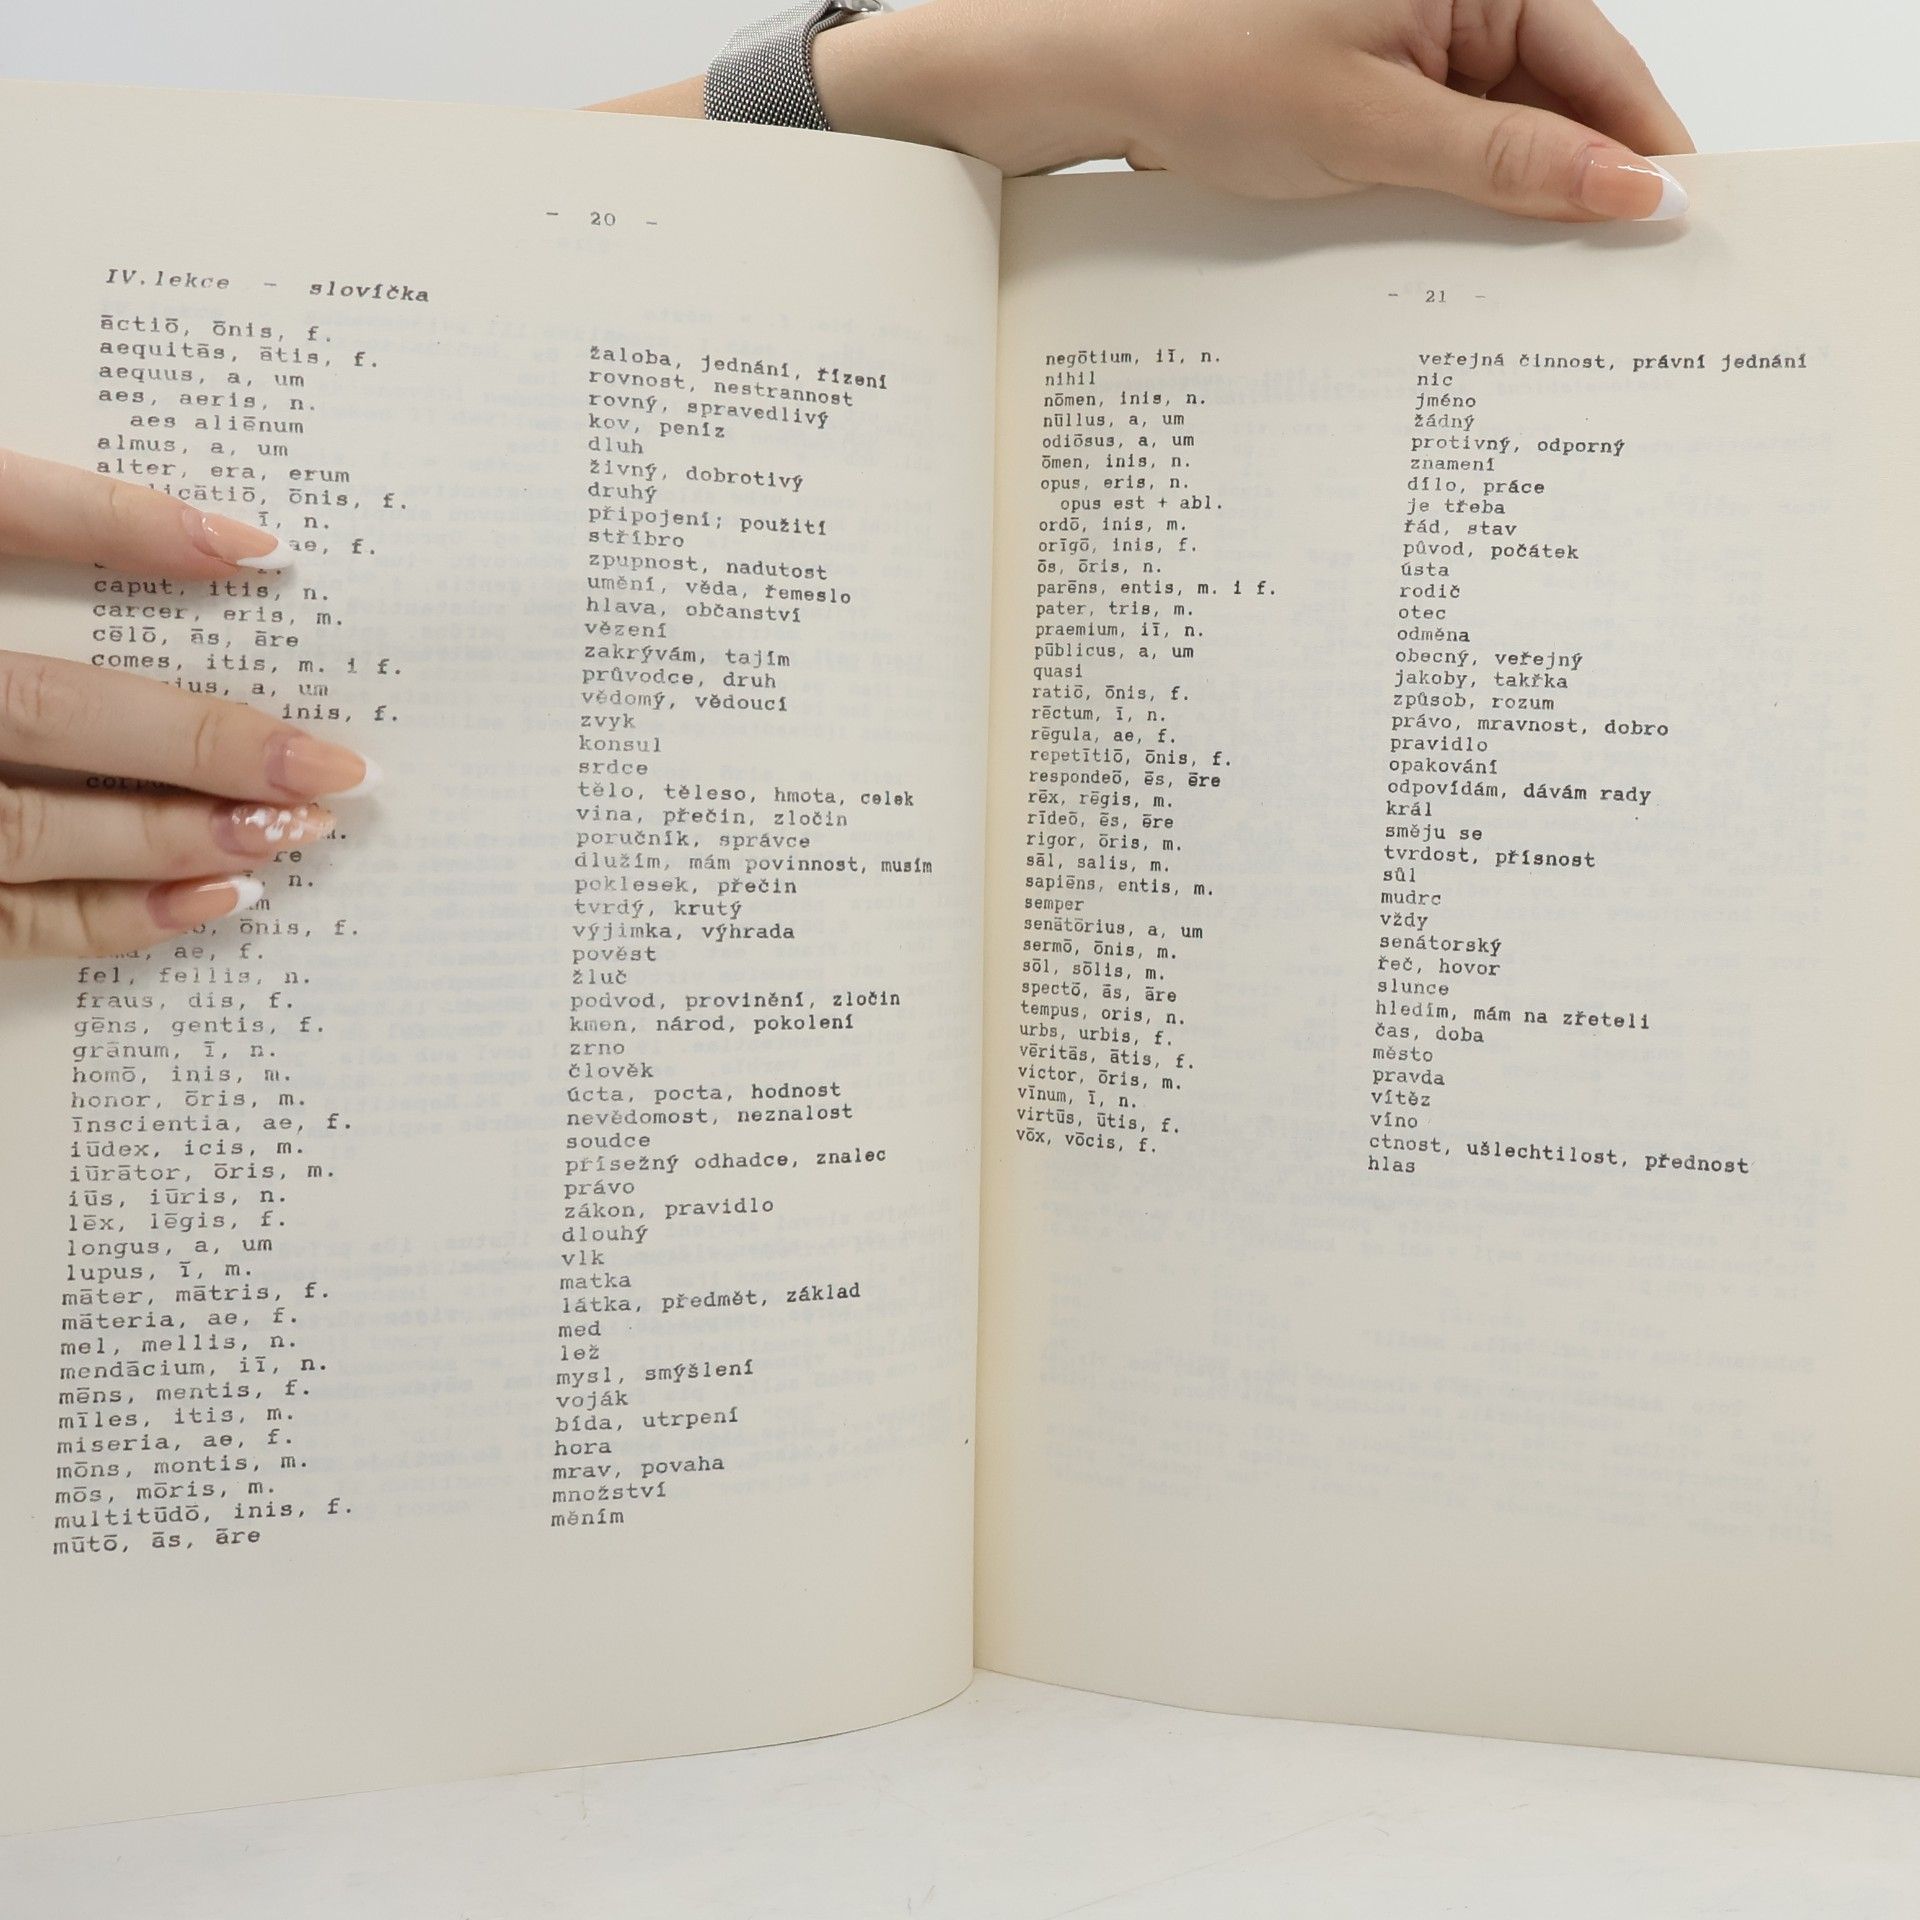 - 20 -
IV.lekce - slovíčka
āctiō, ōnis, f. žaloba, jednání, řízení
aequitās, ātis, f. rovnost, nestrannost
aequus, a, um rovný, spravedlivý
aes, aeris, n. kov, peníz
aes aliēnum dluh
almus, a, um živný, dobrotivý
alter, era, erum druhý
ōnis, f. připojení; použití
ī, n. stříbro
ae, f. zpupnost, nadutost
umění, věda, řemeslo
caput, itis, n. hlava, občanství
carcer, eris, m. vězení
cēlō, ās, āre zakrývám, tajím
comes, itis, m. i f. průvodce, druh
a, um vědomý, vědoucí
inis, f. zvyk
konsul
srdce
tělo, těleso, hmota, celek
vina, přečin, zločin
poručník, správce
dlužím, mám povinnost, musím
n. poklesek, přečin
tvrdý, krutý
ōnis, f. výjimka, výhrada
ae, f. pověst
fel, fellis, n. žluč
fraus, dis, f. podvod, provinění, zločin
gēns, gentis, f. kmen, národ, pokolení
grānum, ī, n. zrno
homō, inis, m. člověk
honor, ōris, m. úcta, pocta, hodnost
īnscientia, ae, f. nevědomost, neznalost
iūdex, icis, m. soudce
iūrātor, ōris, m. přísežný odhadce, znalec
iūs, iūris, n. právo
lēx, lēgis, f. zákon, pravidlo
longus, a, um dlouhý
lupus, ī, m. vlk
māter, mātris, f. matka
māteria, ae, f. látka, předmět, základ
mel, mellis, n. med
mendācium, iī, n. lež
mēns, mentis, f. mysl, smýšlení
mīles, itis, m. voják
miseria, ae, f. bída, utrpení
mōns, montis, m. hora
mōs, mōris, m. mrav, povaha
multitūdō, inis, f. množství
mūtō, ās, āre měním
- 21 -
negōtium, iī, n. veřejná činnost, právní jednání
nihil nic
nōmen, inis, n. jméno
nūllus, a, um žádný
odiōsus, a, um protivný, odporný
ōmen, inis, n. znamení
opus, eris, n. dílo, práce
opus est + abl. je třeba
ordō, inis, m. řád, stav
orīgō, inis, f. původ, počátek
ōs, ōris, n. ústa
parēns, entis, m. i f. rodič
pater, tris, m. otec
praemium, iī, n. odměna
pūblicus, a, um obecný, veřejný
quasi jakoby, takřka
ratiō, ōnis, f. způsob, rozum
rēctum, ī, n. právo, mravnost, dobro
rēgula, ae, f. pravidlo
repetītiō, ōnis, f. opakování
respondeō, ēs, ēre odpovídám, dávám rady
rēx, rēgis, m. král
rīdeō, ēs, ēre směju se
rigor, ōris, m. tvrdost, přísnost
sāl, salis, m. sůl
sapiēns, entis, m. mudrc
semper vždy
senātōrius, a, um senátorský
sermō, ōnis, m. řeč, hovor
sōl, sōlis, m. slunce
spectō, ās, āre hledím, mám na zřeteli
tempus, oris, n. čas, doba
urbs, urbis, f. město
vēritās, ātis, f. pravda
victor, ōris, m. vítěz
vīnum, ī, n. víno
virtūs, ūtis, f. ctnost, ušlechtilost, přednost
vōx, vōcis, f. hlas